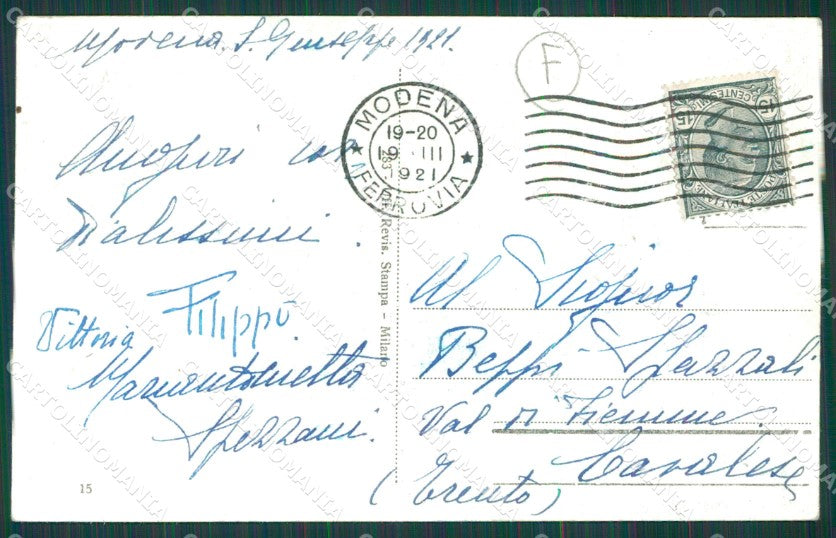 Modena. S. Giuseppe 1921.
Auguri
Vittoria
Filippo
Mariantonietta
Spezzani.
15
MODENA
19-20
9 III
1921
FERROVIA
Revis. Stampa - Milano
F
15
CENTESIMI
15
Al Signor
Beppi
Val di Fiemme.
Cavalese
(Trento)
CARTOLINOMANIA